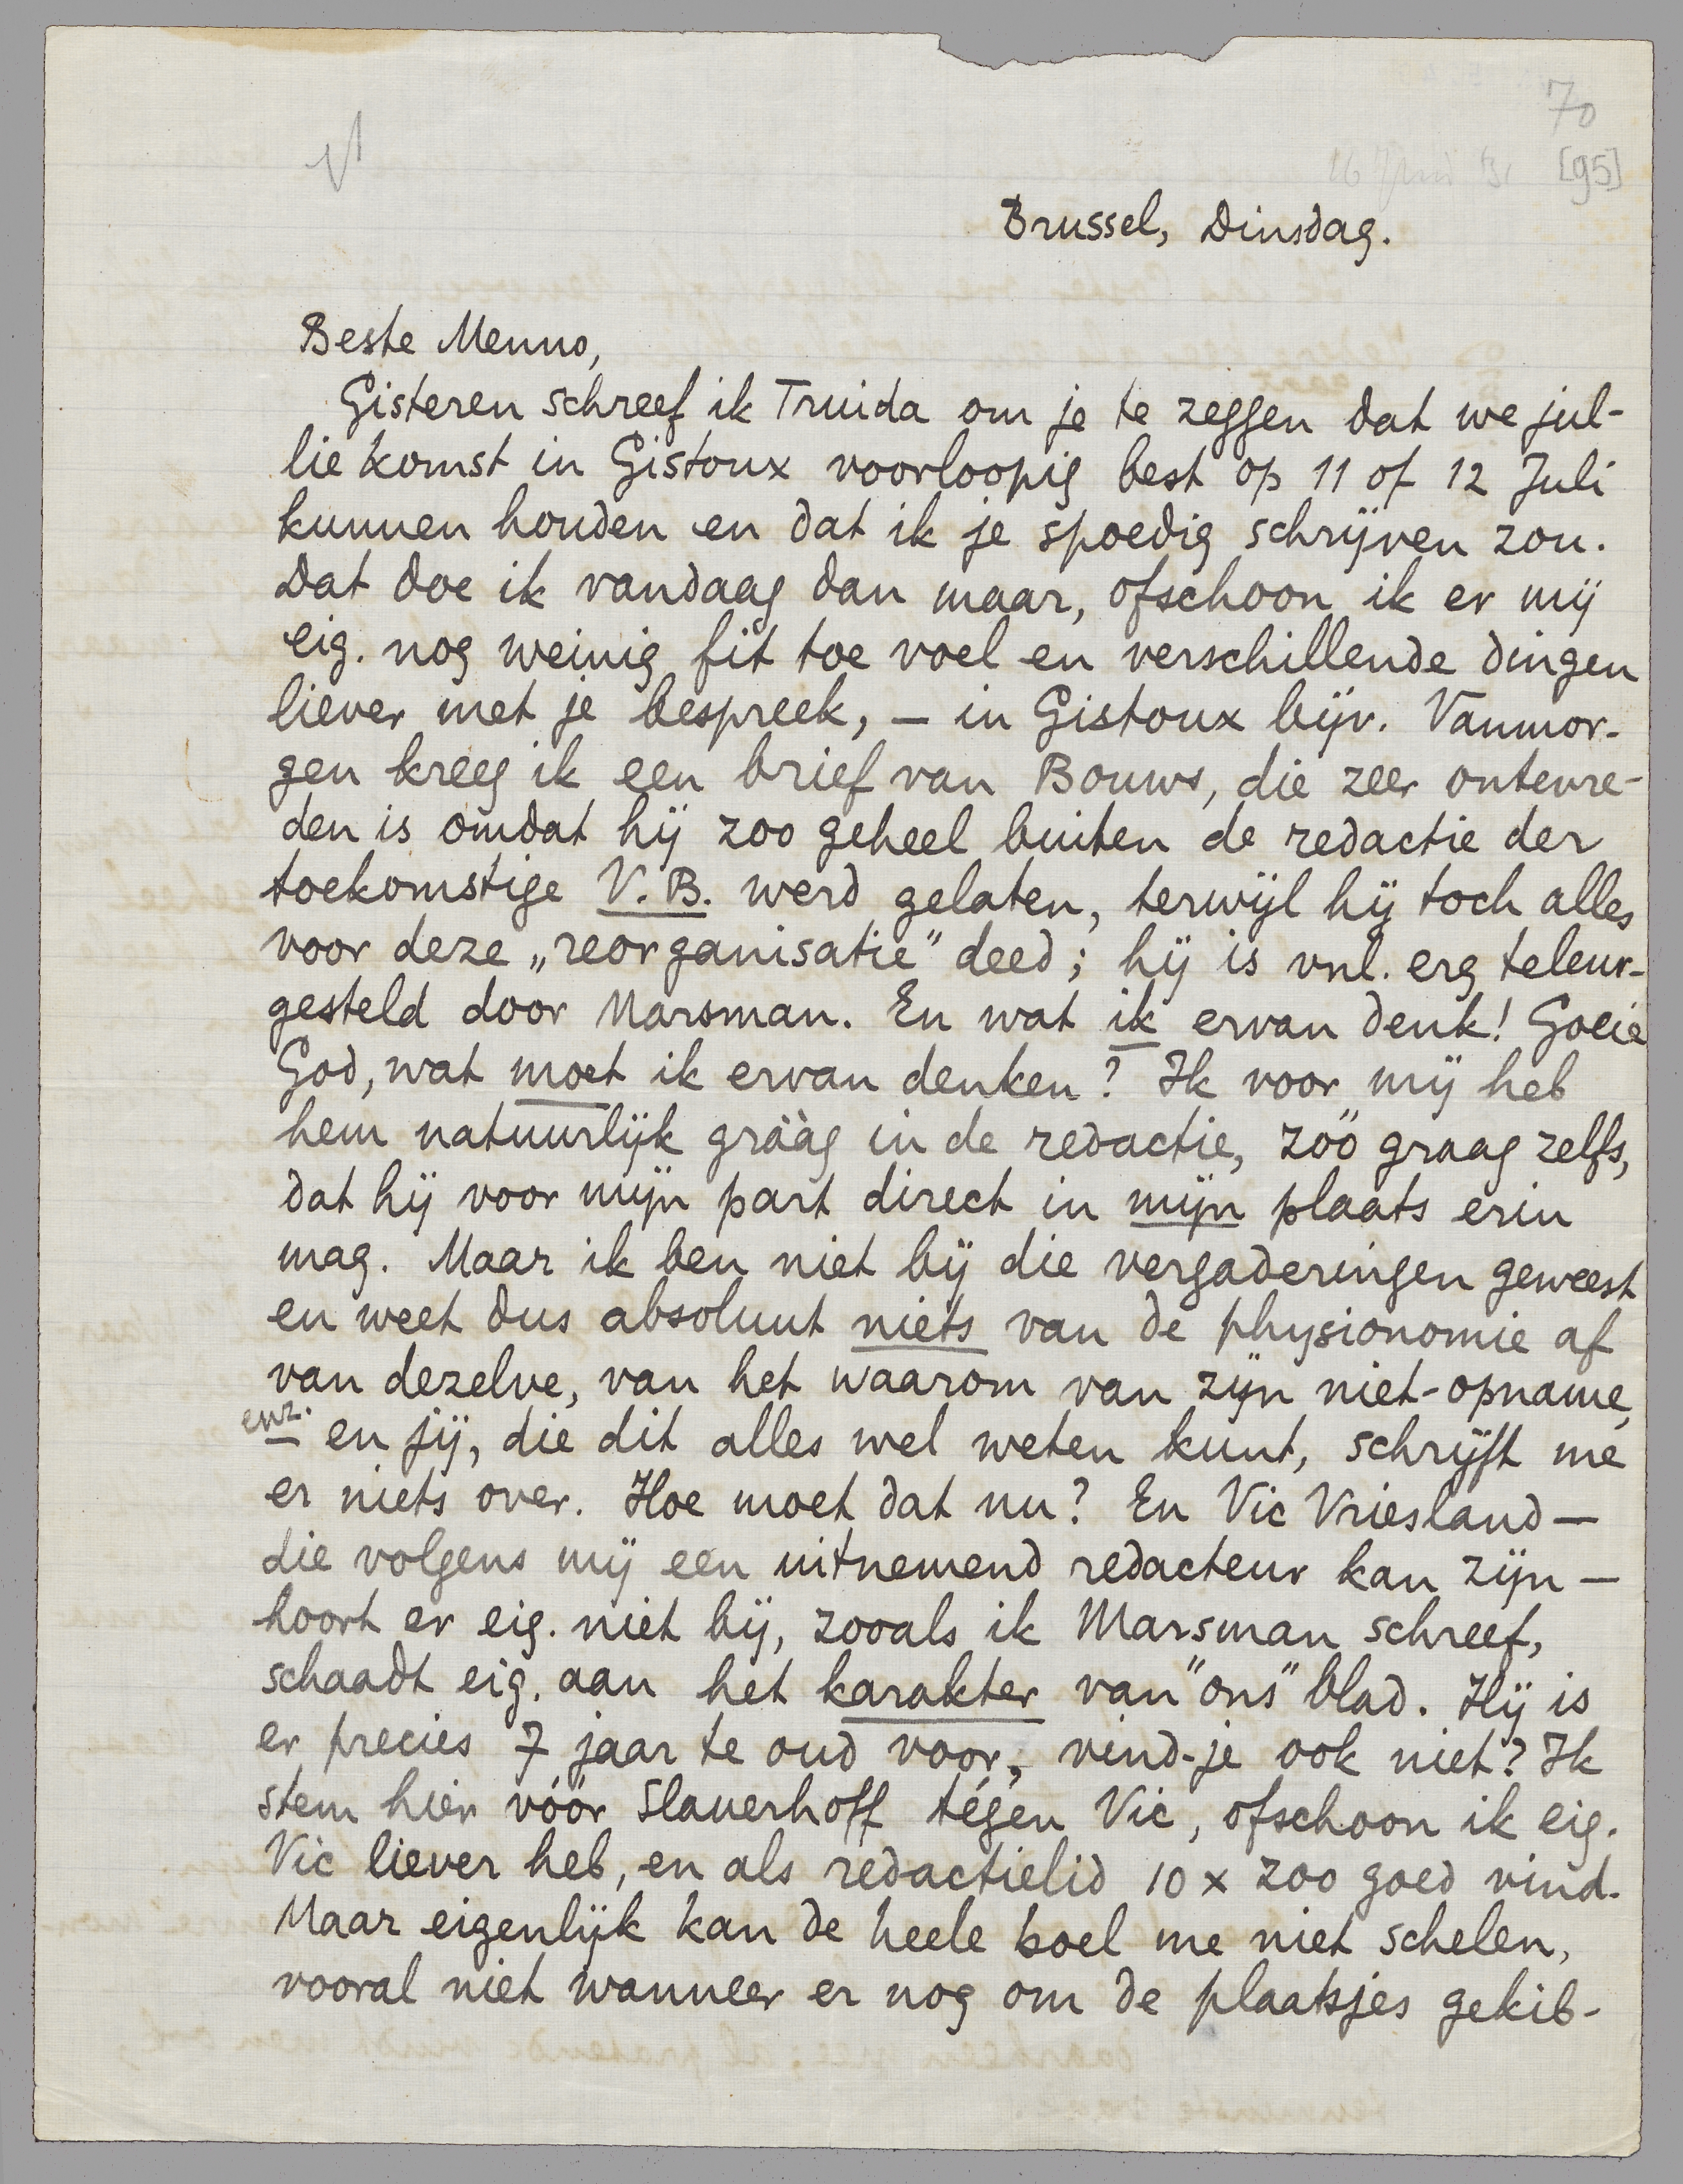 70
16 Juni '31 [95]
Brussel, Dinsdag.
Beste Menno,
Gisteren schreef ik Truida om je te zeggen dat we jul-
lie komst in Gistoux voorloopig best op 11 of 12 Juli
kunnen houden en dat ik je spoedig schrijven zou.
Dat doe ik vandaag dan maar, ofschoon ik er mij
eig. nog weinig fit toe voel en verschillende dingen
liever met je bespreek, — in Gistoux bijv. Vanmor-
gen kreeg ik een brief van Bouws, die zeer ontevre-
den is omdat hij zoo geheel buiten de redactie der
toekomstige V.B. werd gelaten, terwijl hij toch alles
voor deze „reorganisatie" deed; hij is vnl. erg teleur-
gesteld door Marsman. En wat ik ervan denk! Goeie
God, wat moet ik ervan denken? Ik voor mij heb
hem natuurlijk grààg in de redactie, zóó graag zelfs,
dat hij voor mijn part direct in mijn plaats erin
mag. Maar ik ben niet bij die vergaderingen geweest
en weet dus absoluut niets van de physionomie af
van dezelve, van het waarom van zijn niet-opname,
enz. en jij, die dit alles wel weten kunt, schrijft me
er niets over. Hoe moet dat nu? En Vic Vriesland —
die volgens mij een uitnemend redacteur kan zijn —
hoort er eig. niet bij, zooals ik Marsman schreef,
schaadt eig. aan het karakter van "ons" blad. Hij is
er precies 7 jaar te oud voor, vind-je ook niet? Ik
stem hier vóór Slauerhoff tégen Vic, ofschoon ik eig.
Vic liever heb, en als redactielid 10 x zoo goed vind.
Maar eigenlijk kan de heele boel me niet schelen,
vooral niet wanneer er nog om de plaatsjes gekib-